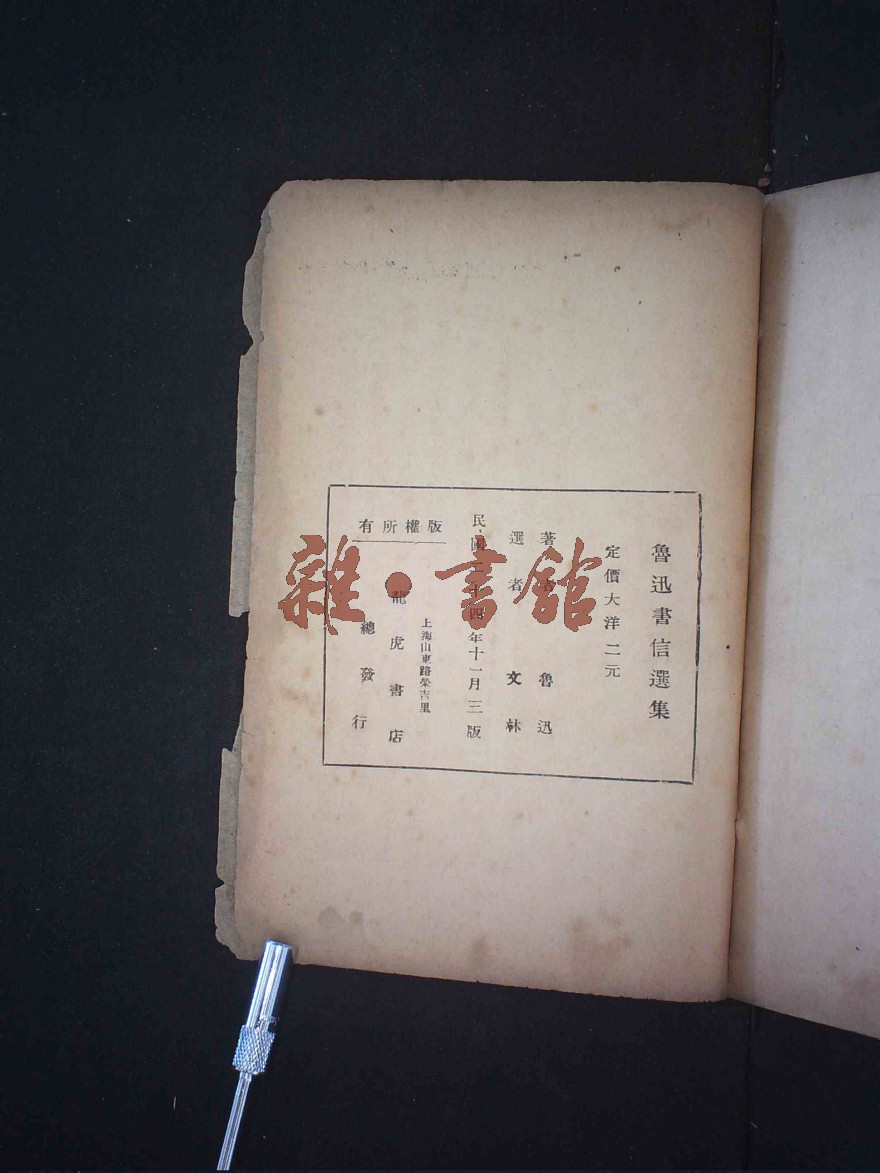 魯迅書信選集
定價大洋二元
著者 魯迅
選者 文林
民國二十四年十一月三版
上海山東路榮吉里
龍虎書店
總發行
版權所有
雜·書館